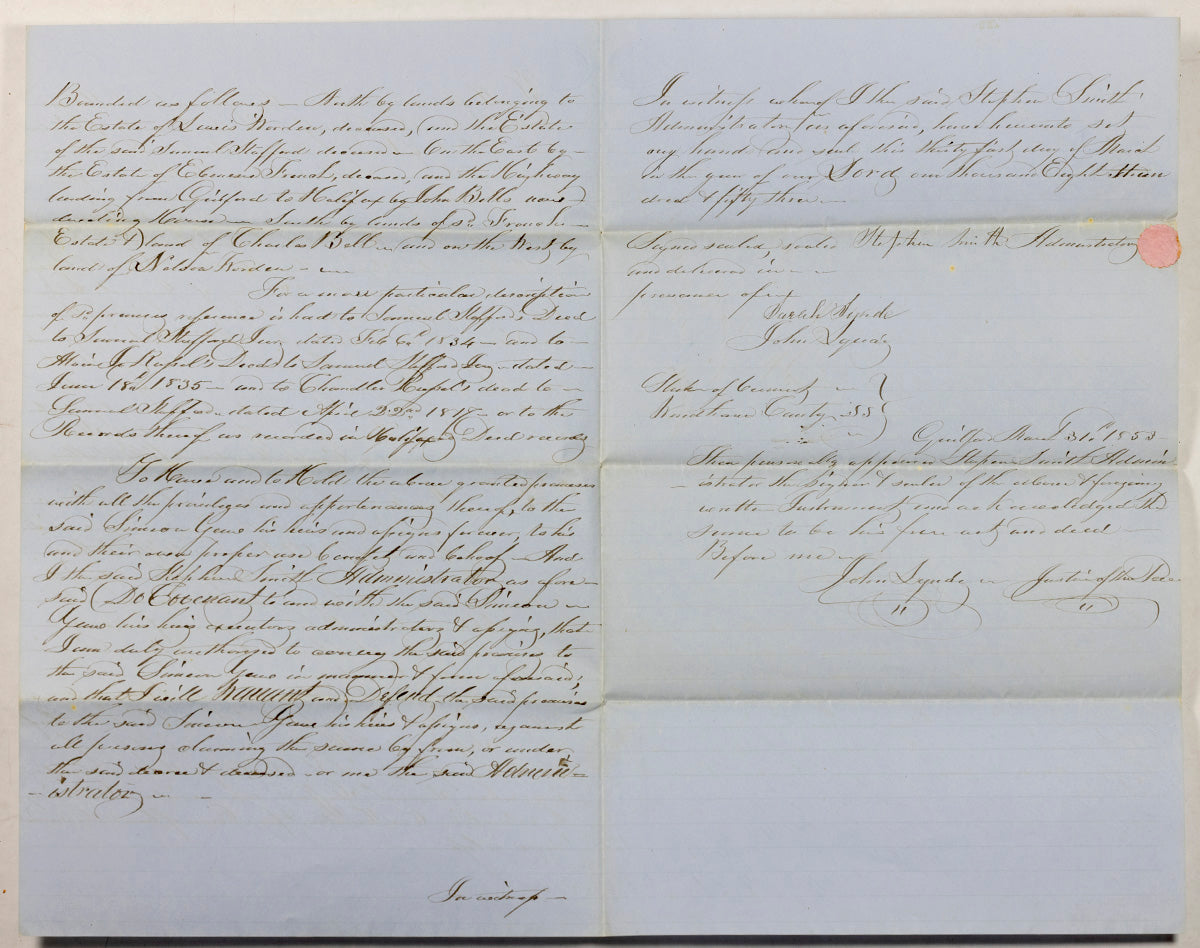 Bounded as follows – North by lands belonging to
the Estate of Lewis Worden, deceased, and the Estate
of the said Samuel Stafford deceased – On the East by –
the Estate of Ebenezer French, deceased, and the Highway
leading from Guilford to Halifax by John Bells
dwelling House – South by lands of sd. French
Estate & land of Charles Bell – and on the West by
land of Nelson Worden –
For a more particular description
of sd. premises reference is had to Samuel Stafford's Deed
to Samuel Stafford Jun. dated Feb 6th 1834 – and to –
Russel's Deed to Samuel Stafford Jun – dated –
June 18th 1835 – and to Chandler Russel's deed to –
Samuel Stafford – dated April 22nd 1817 – or to the
Records thereof as recorded in Halifax Deed records
To Have and to Hold the above granted premises
with all the privileges and appertenances thereof, to the
said Simeon his heirs and assigns forever, to his
and their own proper use benefit and behoof – And
I the said Stephen Smith Administrator as afore –
said Do Covenant to and with the said Simeon –
his heirs executors administrators & assigns, that
I am duly authorized to convey the said premises to
the said Simeon in manner & form aforesaid;
and that I will Warrant and Defend the said premises
to the said Simeon his heirs & assigns, against
all persons claiming the same by from, or under
the said deceased – or me the said Admin=
istrator –
In witness –
In witness whereof I the said Stephen Smith
Administrator as aforesaid, have hereunto set
my hand and seal this thirty first day of March
in the year of our Lord one thousand Eight
& fifty three –
Signed sealed, Stephen Smith Administrator
and delivered in –
presence of –
Sarah Lynde
John Lynde
State of Vermont –
Windham County SS
Guilford March 31st 1853 –
Then personally appeared Stephen Smith Admin
istrator the signer & sealer of the above & foregoing
written Instrument and acknowledged the
same to be his free act and deed –
Before me –
John Lynde – Justice of the Peace